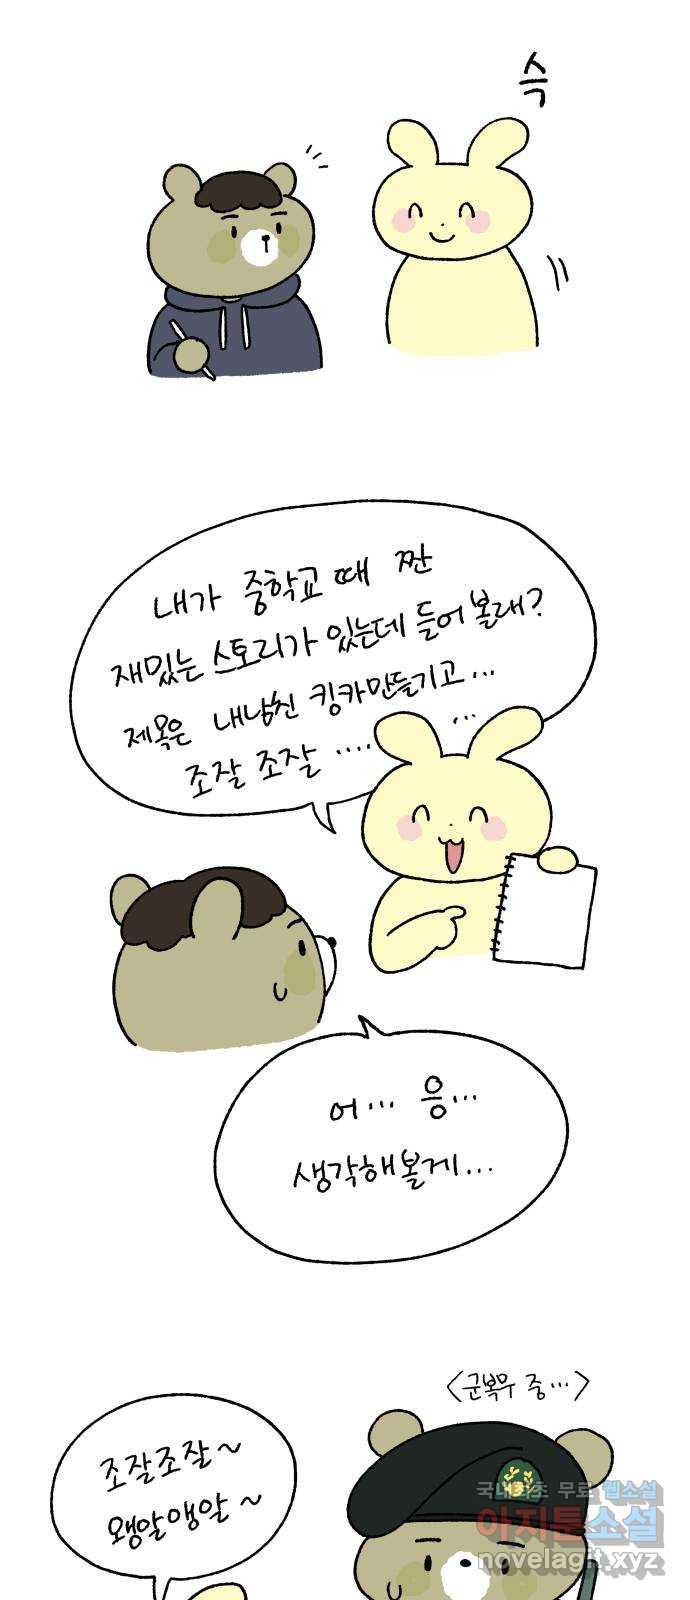 슥
내가 중학교 때 짠
재밌는 스토리가 있는데 들어볼래?
제목은 내남친 킹카만들기고...
조잘 조잘 .... ...
어... 응...
생각해볼게...
<군복무 중...>
조잘조잘~
왱알앵알~
국내최초 무료 웹소설
아지툰소설
novelagit.xyz